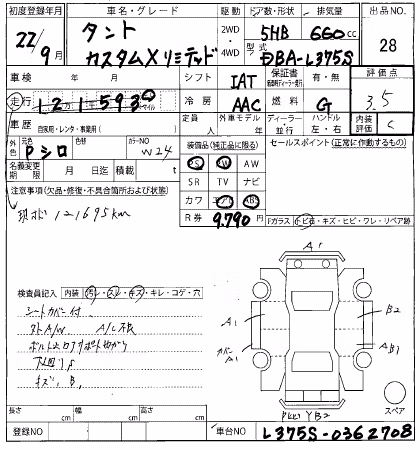 初度登録年月 車名・グレード 駆動 ドア数・形状 排気量 出品NO
22/9月 タント カスタムXリミテッド 2WD 4WD 5HB 660cc 28
型式 DBA-L375S
車検 年 月 シフト IAT 保証書 有・無 評価点
走行 冷房 AAC 燃料 G 3.5
車歴 自家用・レンタ・事業用( ) 定員 人 外車モデル 年 ディーラー・並行 ハンドル 左・右 内装評価 C
外色 元色 Pシロ カラーNO W24 装備品(純正品に限る) セールスポイント(正常に作動するもの)
PS PW AW
名義変更期限 月 日迄 積載 t SR TV ナビ
注意事項(欠品・修復・不具合箇所および状態) カワ エアB ABS
現メーター 121695km R券 9,790円
Fガラス トビ石・キズ・ヒビ・ワレ・リペア跡
検査員記入 内装 汚レ・スレ・キズ・キレ・コゲ・穴
A1
シートカバー付
A1 B2
下廻りS
カバーA1
キズ、B、
YB2
スペア
長さ cm 幅 cm 高さ cm
登録NO 車台NO L375S-0362708